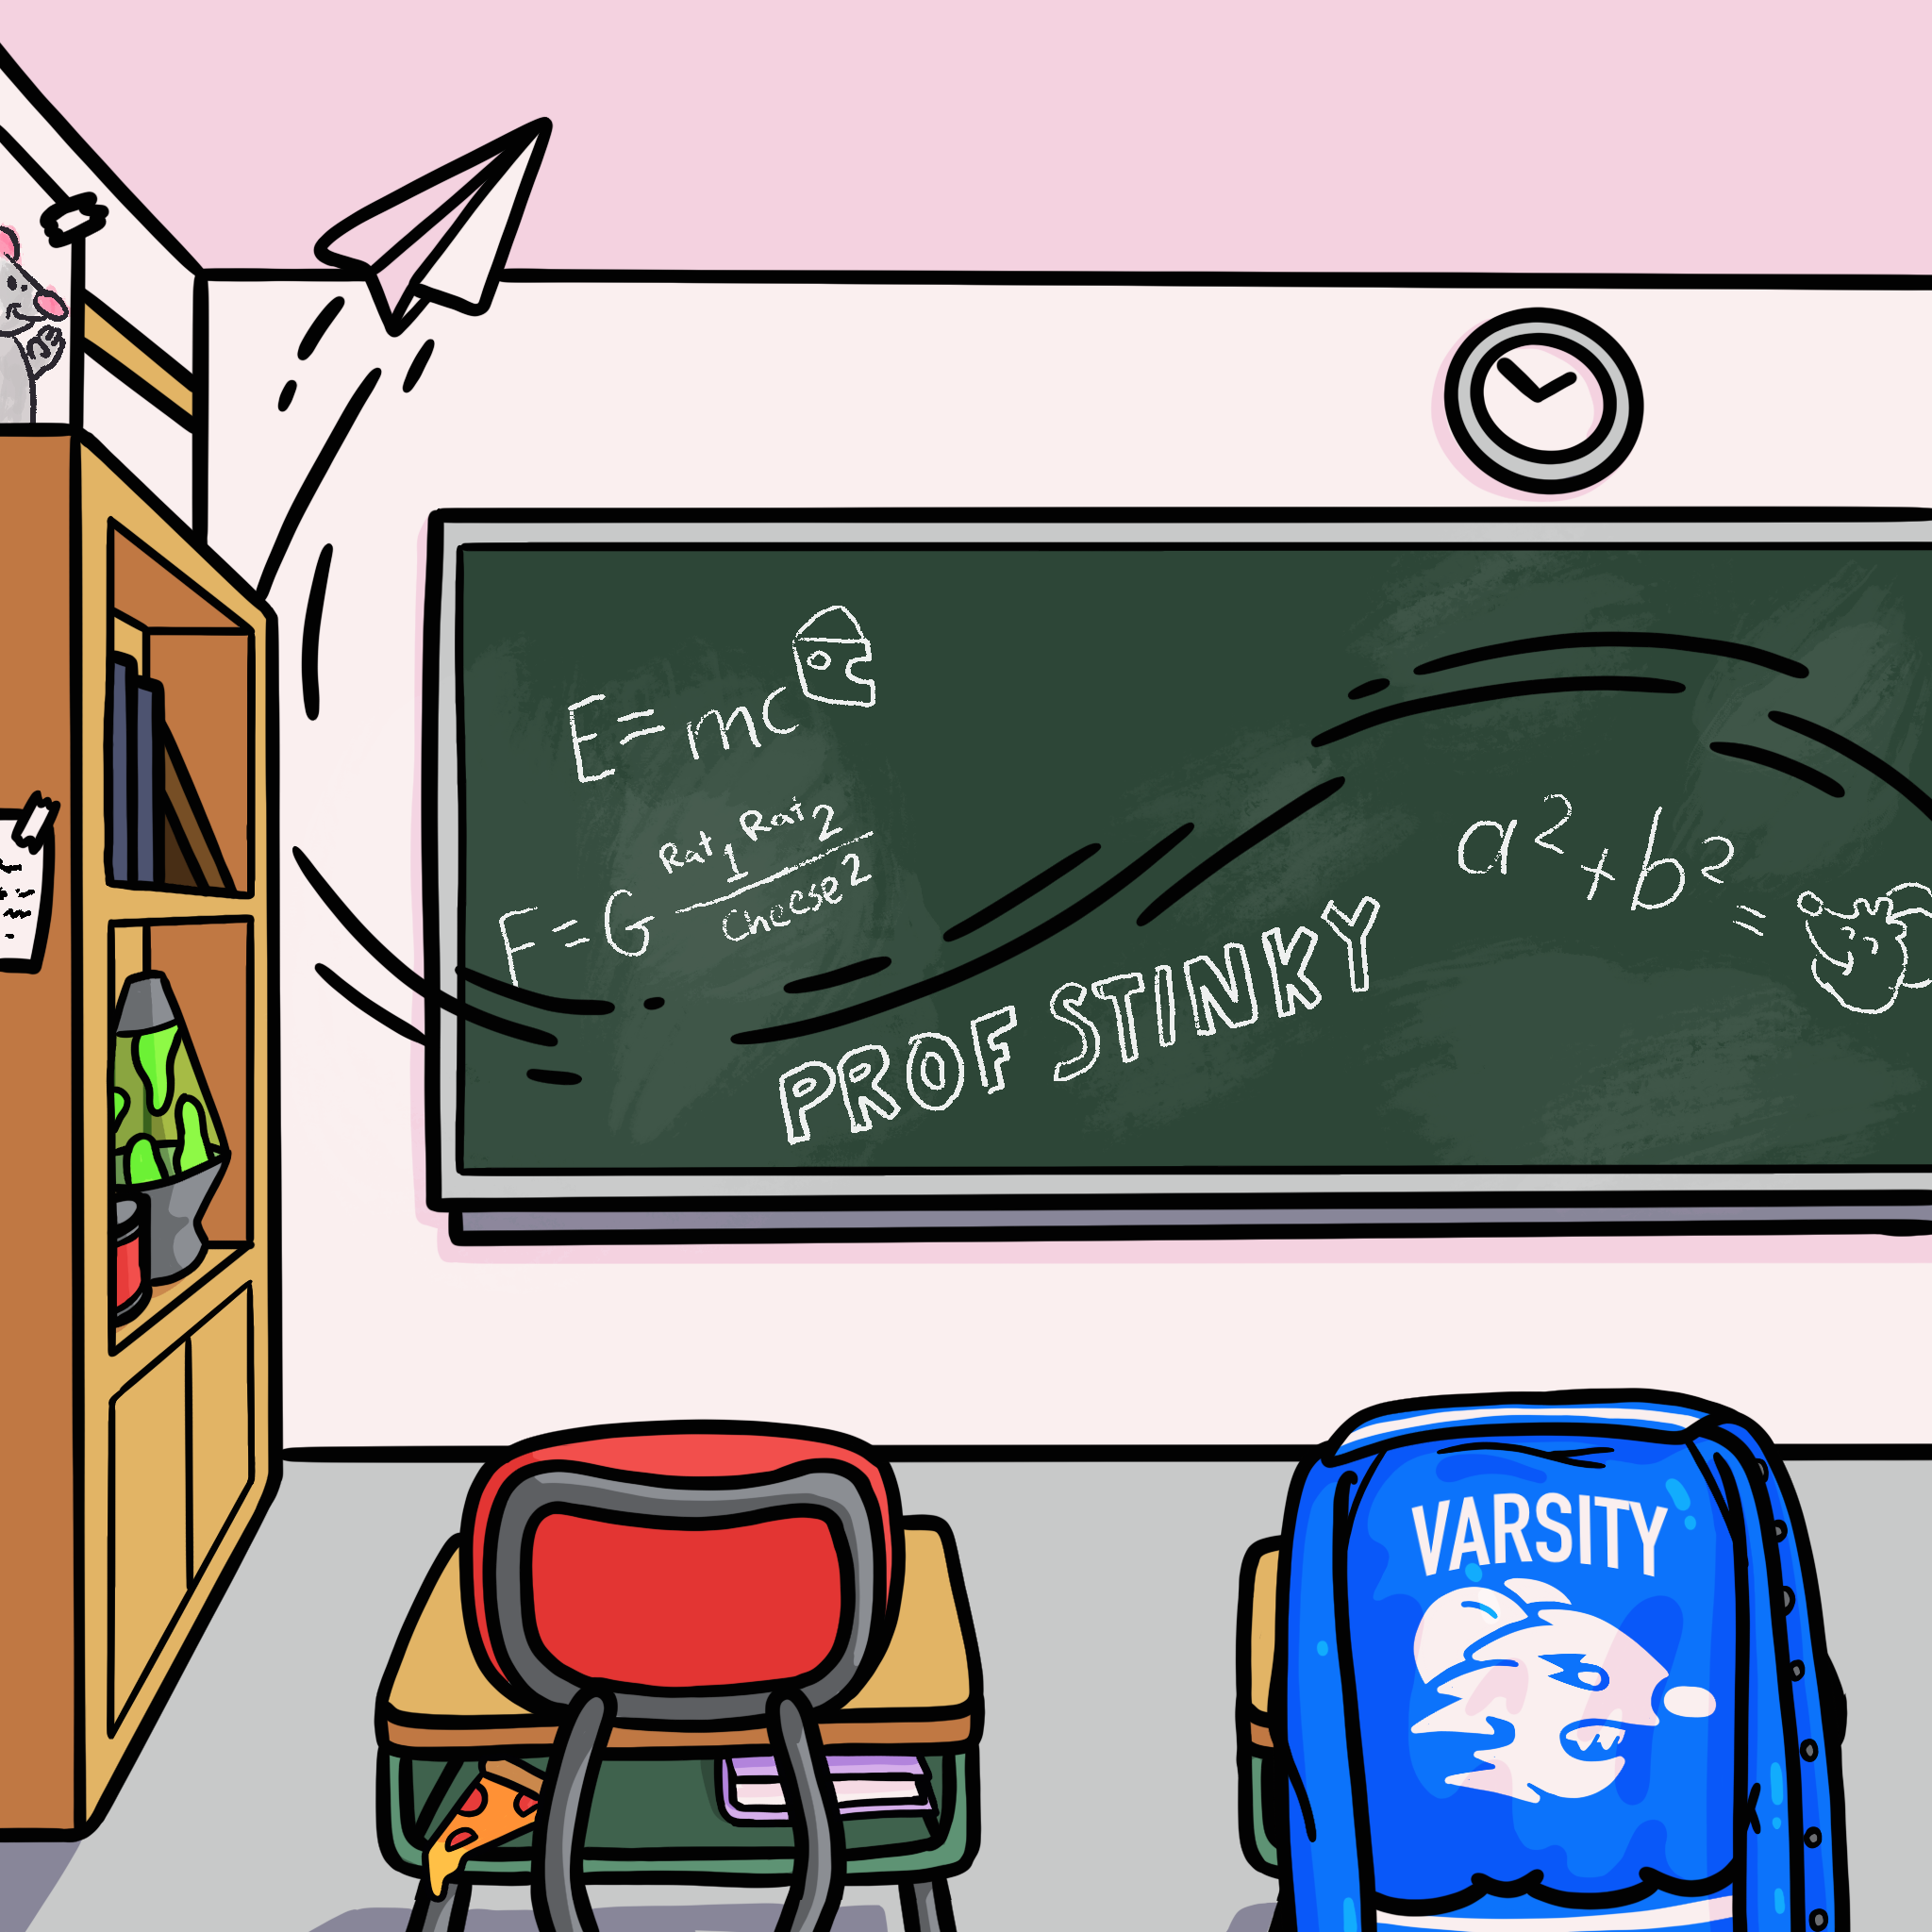 E=mc
F=G Rat1 Rat2
Cheese2
a2+b2=
PROF STINKY
VARSITY